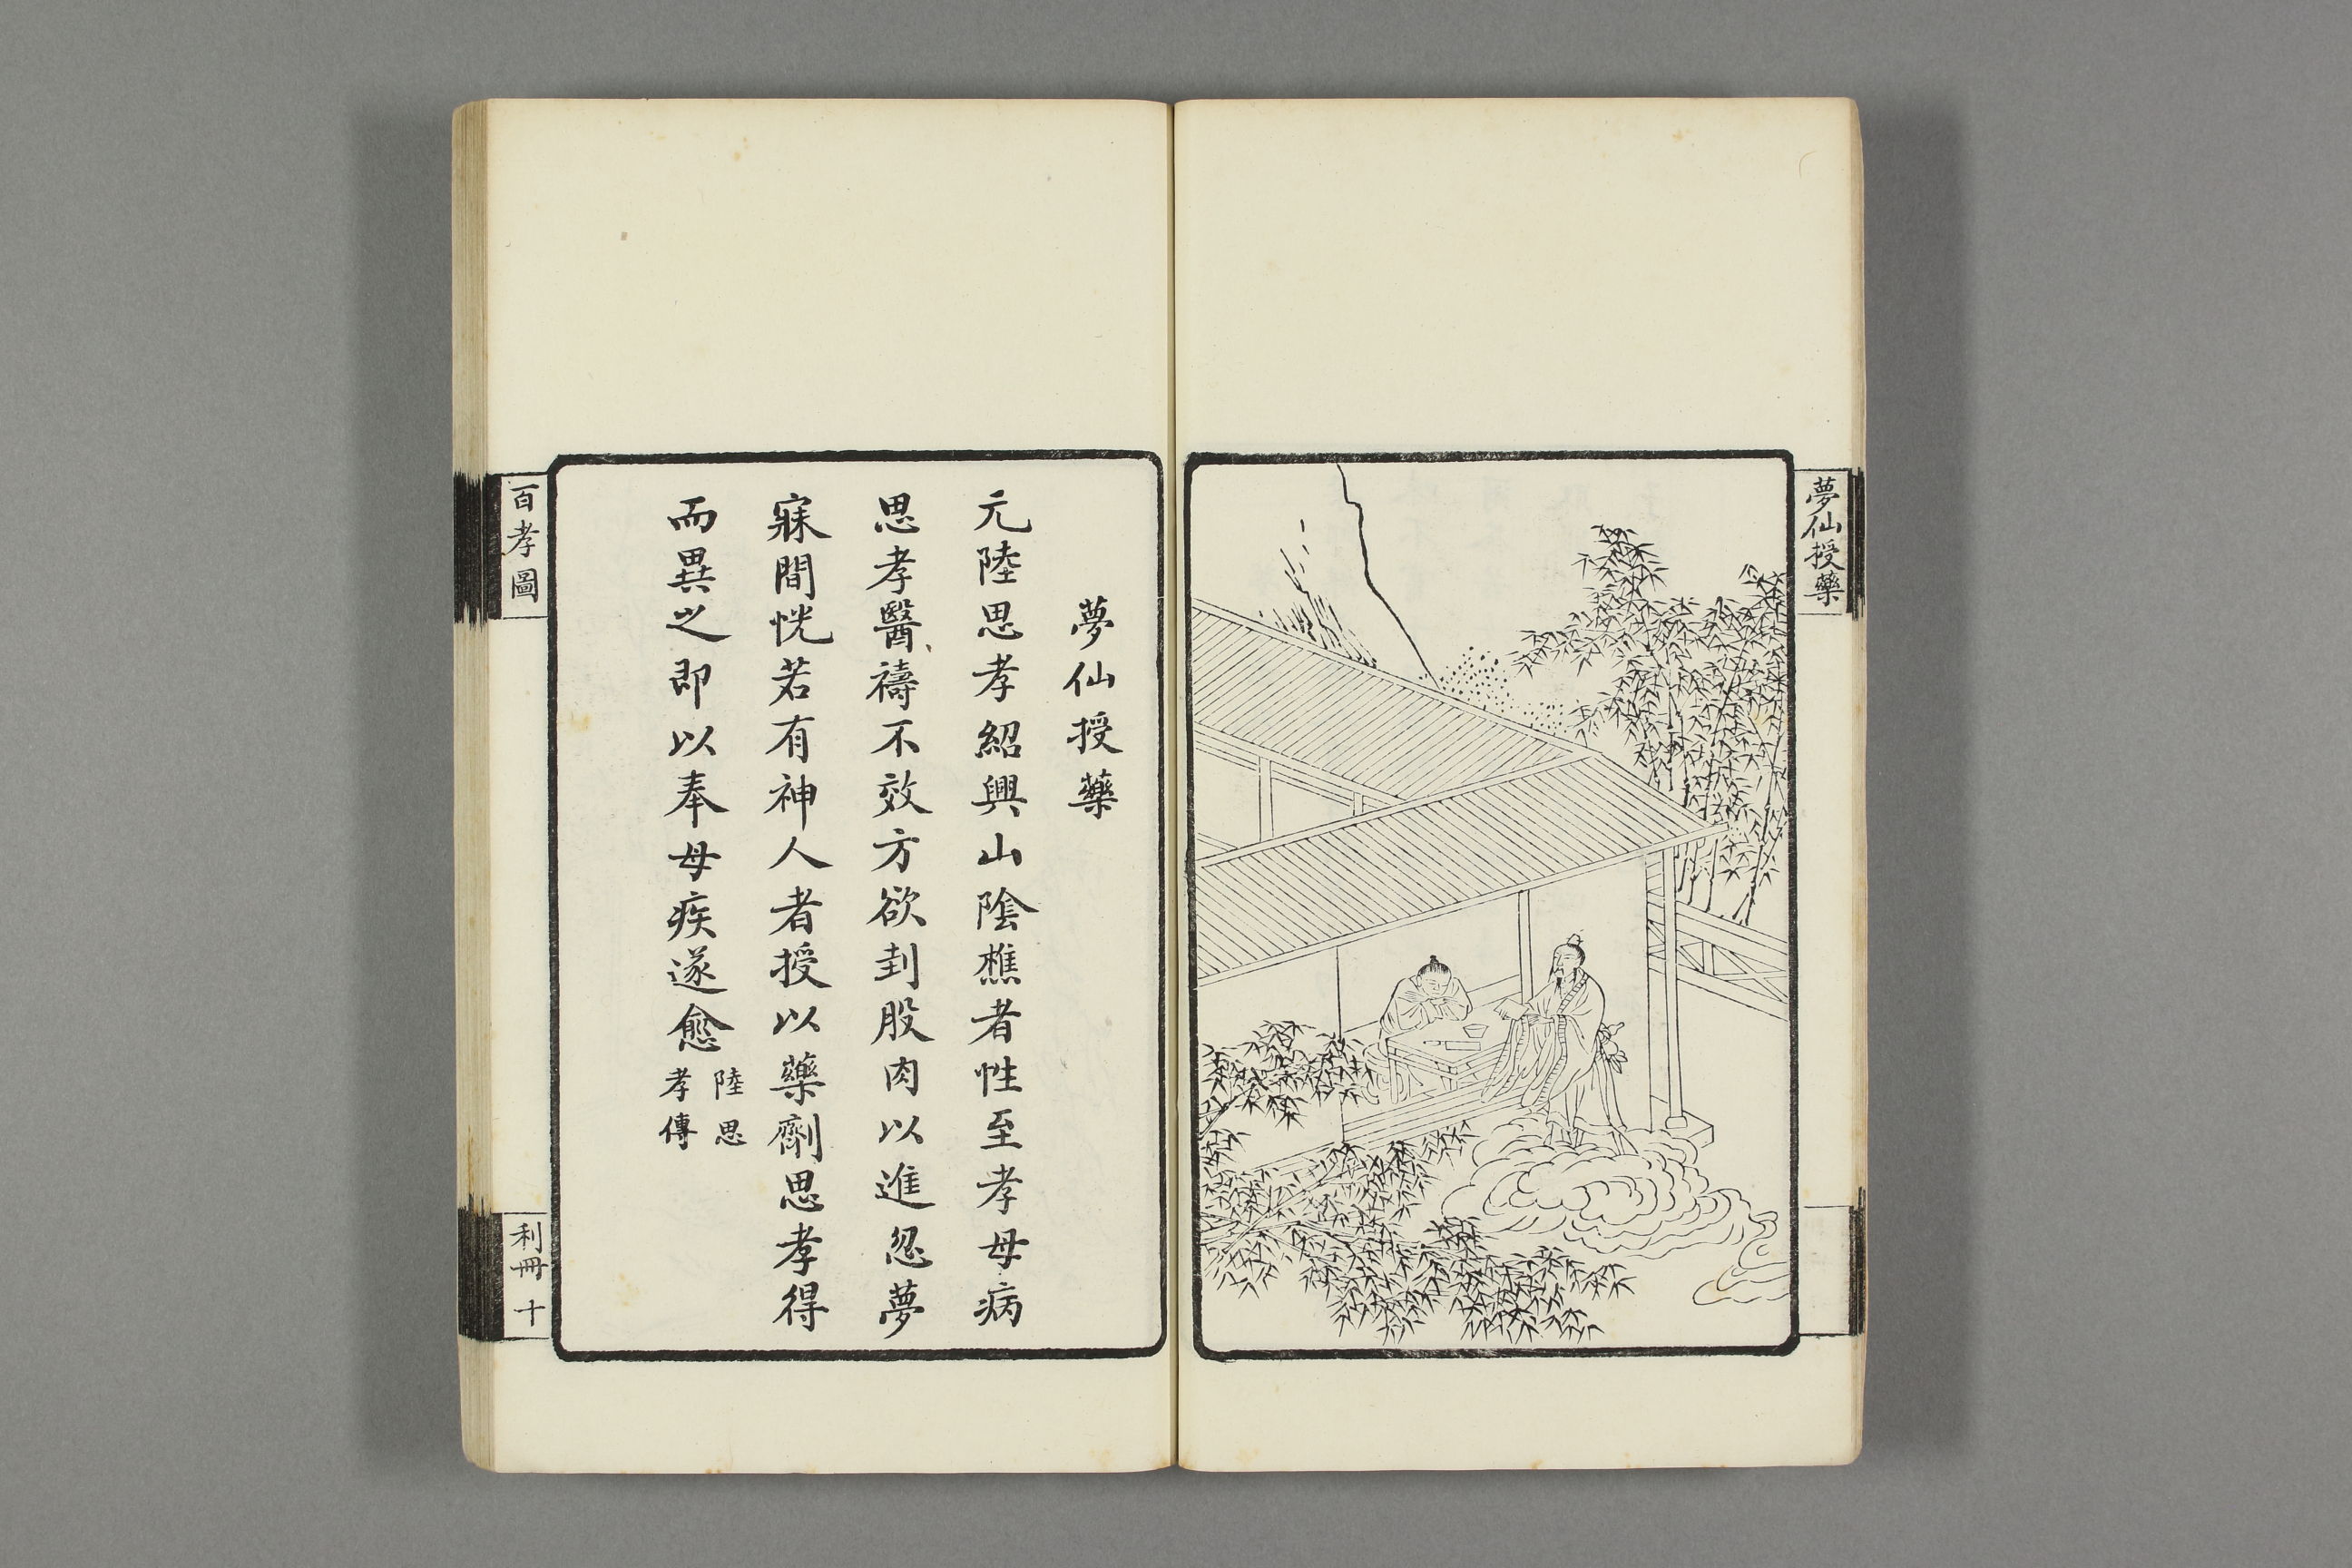 夢仙授藥
夢仙授藥
元陸思孝紹興山陰樵者性至孝母病
思孝醫禱不效方欲刲股肉以進忽夢
寐間恍若有神人者授以藥劑思孝得
而異之即以奉母疾遂愈
陸思
孝傳
百孝圖
利冊 十